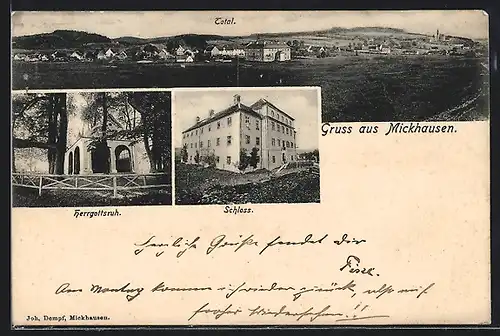 Total.
Gruss aus Mickhausen.
Herrgottsruh.
Schloss.
Herzliche Grüße sendet Dir
Am Montag kommen wieder zurück, also auf
frohes Wiedersehen!!
Joh. Dempf, Mickhausen.